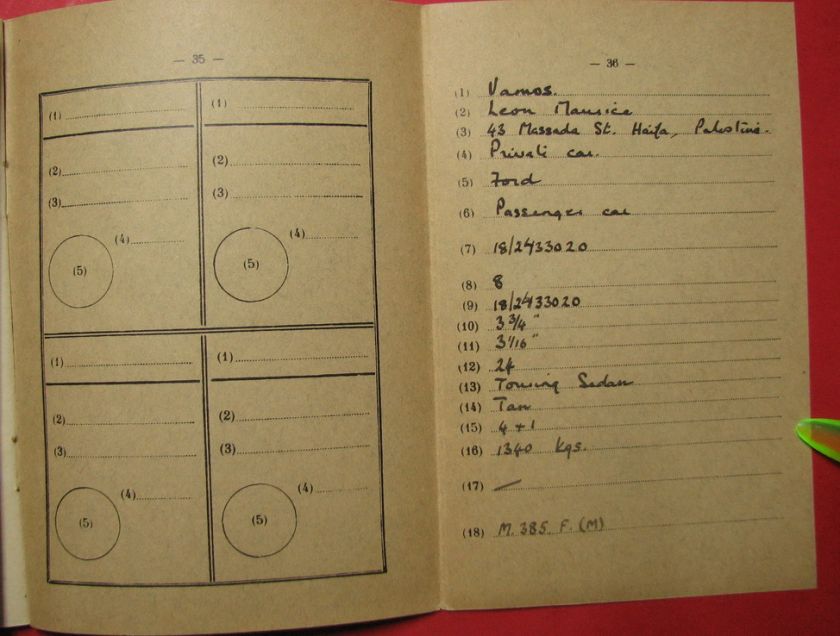 — 35 —
(1) (1)
(2) (2)
(3) (3)
(4) (4)
(5) (5)
(1) (1)
(2) (2)
(3) (3)
(4) (4)
(5) (5)
— 36 —
(1) Vamos.
(2) Leon Maurice
(3) 43 Massada St. Haifa, Palestine.
(4) Private car.
(5) Ford
(6) Passenger car
(7) 18/2433020
(8) 8
(9) 18/2433020
(10) 3 3/4 "
(11) 3 1/16 "
(12) 24
(13) Touring Sedan
(14) Tan
(15) 4 + 1
(16) 1340 Kgs.
(17) —
(18) M. 385. F. (M)